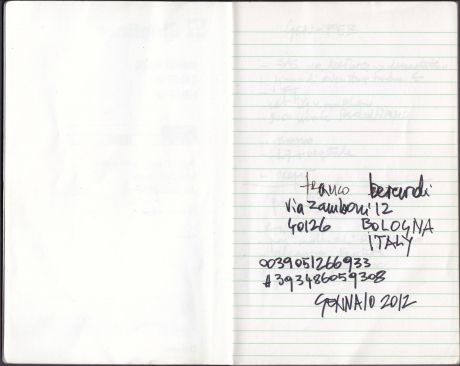 franco berardi
via Zamboni 12
40126 BOLOGNA
ITALY
0039051266933
+393486059308
GENNAIO 2012